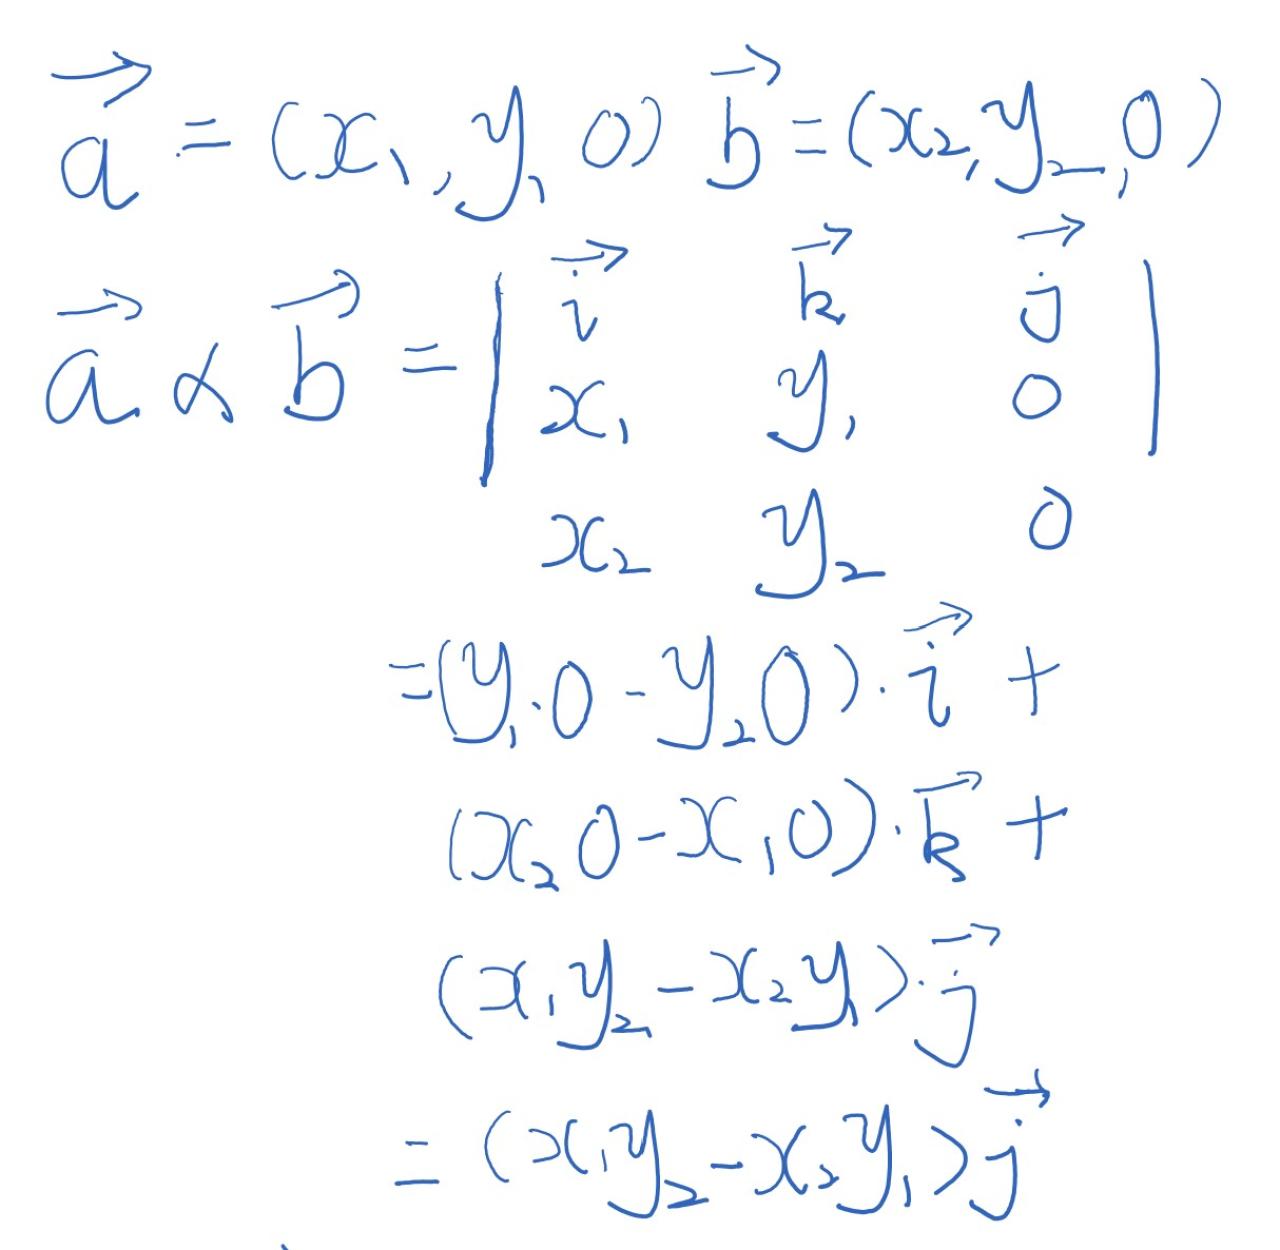 a⃗ = (x₁, y₁ 0) b⃗ = (x₂, y₂, 0)
a⃗ × b⃗ = | i⃗ k⃗ j⃗ |
x₁ y₁ 0
x₂ y₂ 0
= (y₁·0 - y₂0)·i⃗ +
(x₂0 - x₁0)·k⃗ +
(x₁y₂ - x₂y₁)·j⃗
= (x₁y₂ - x₂y₁)j⃗